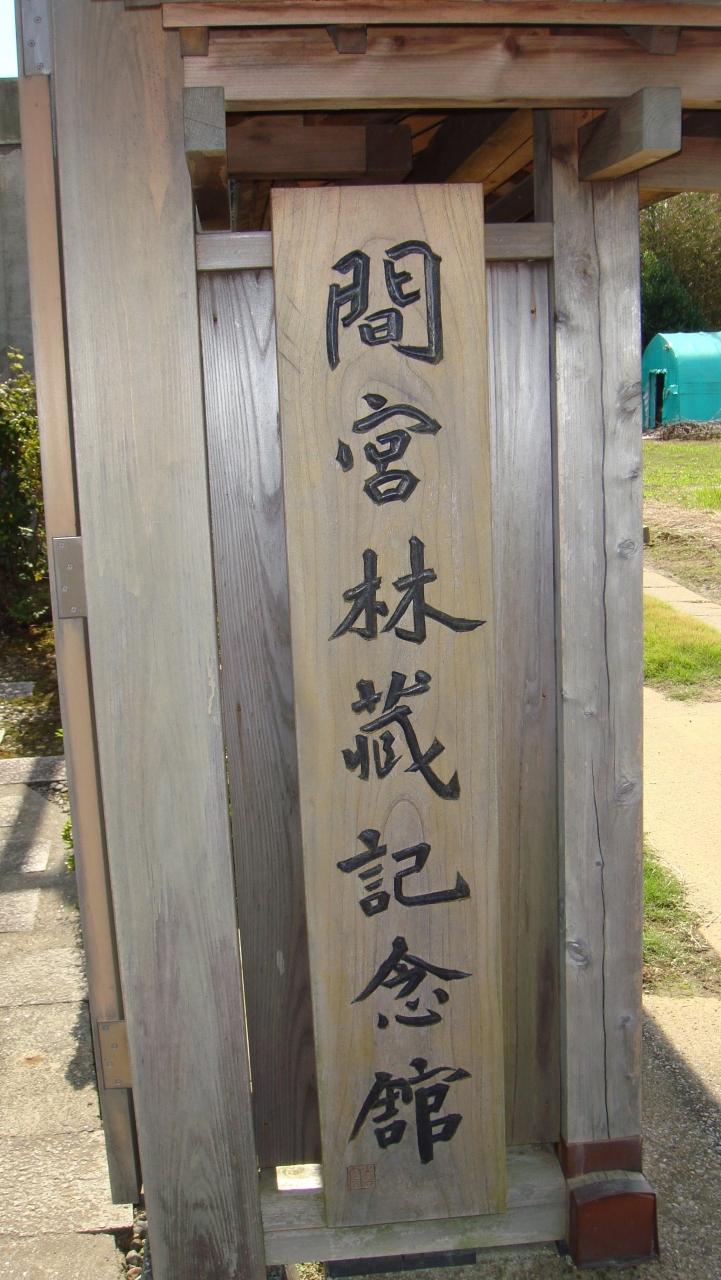 間宮林藏記念館